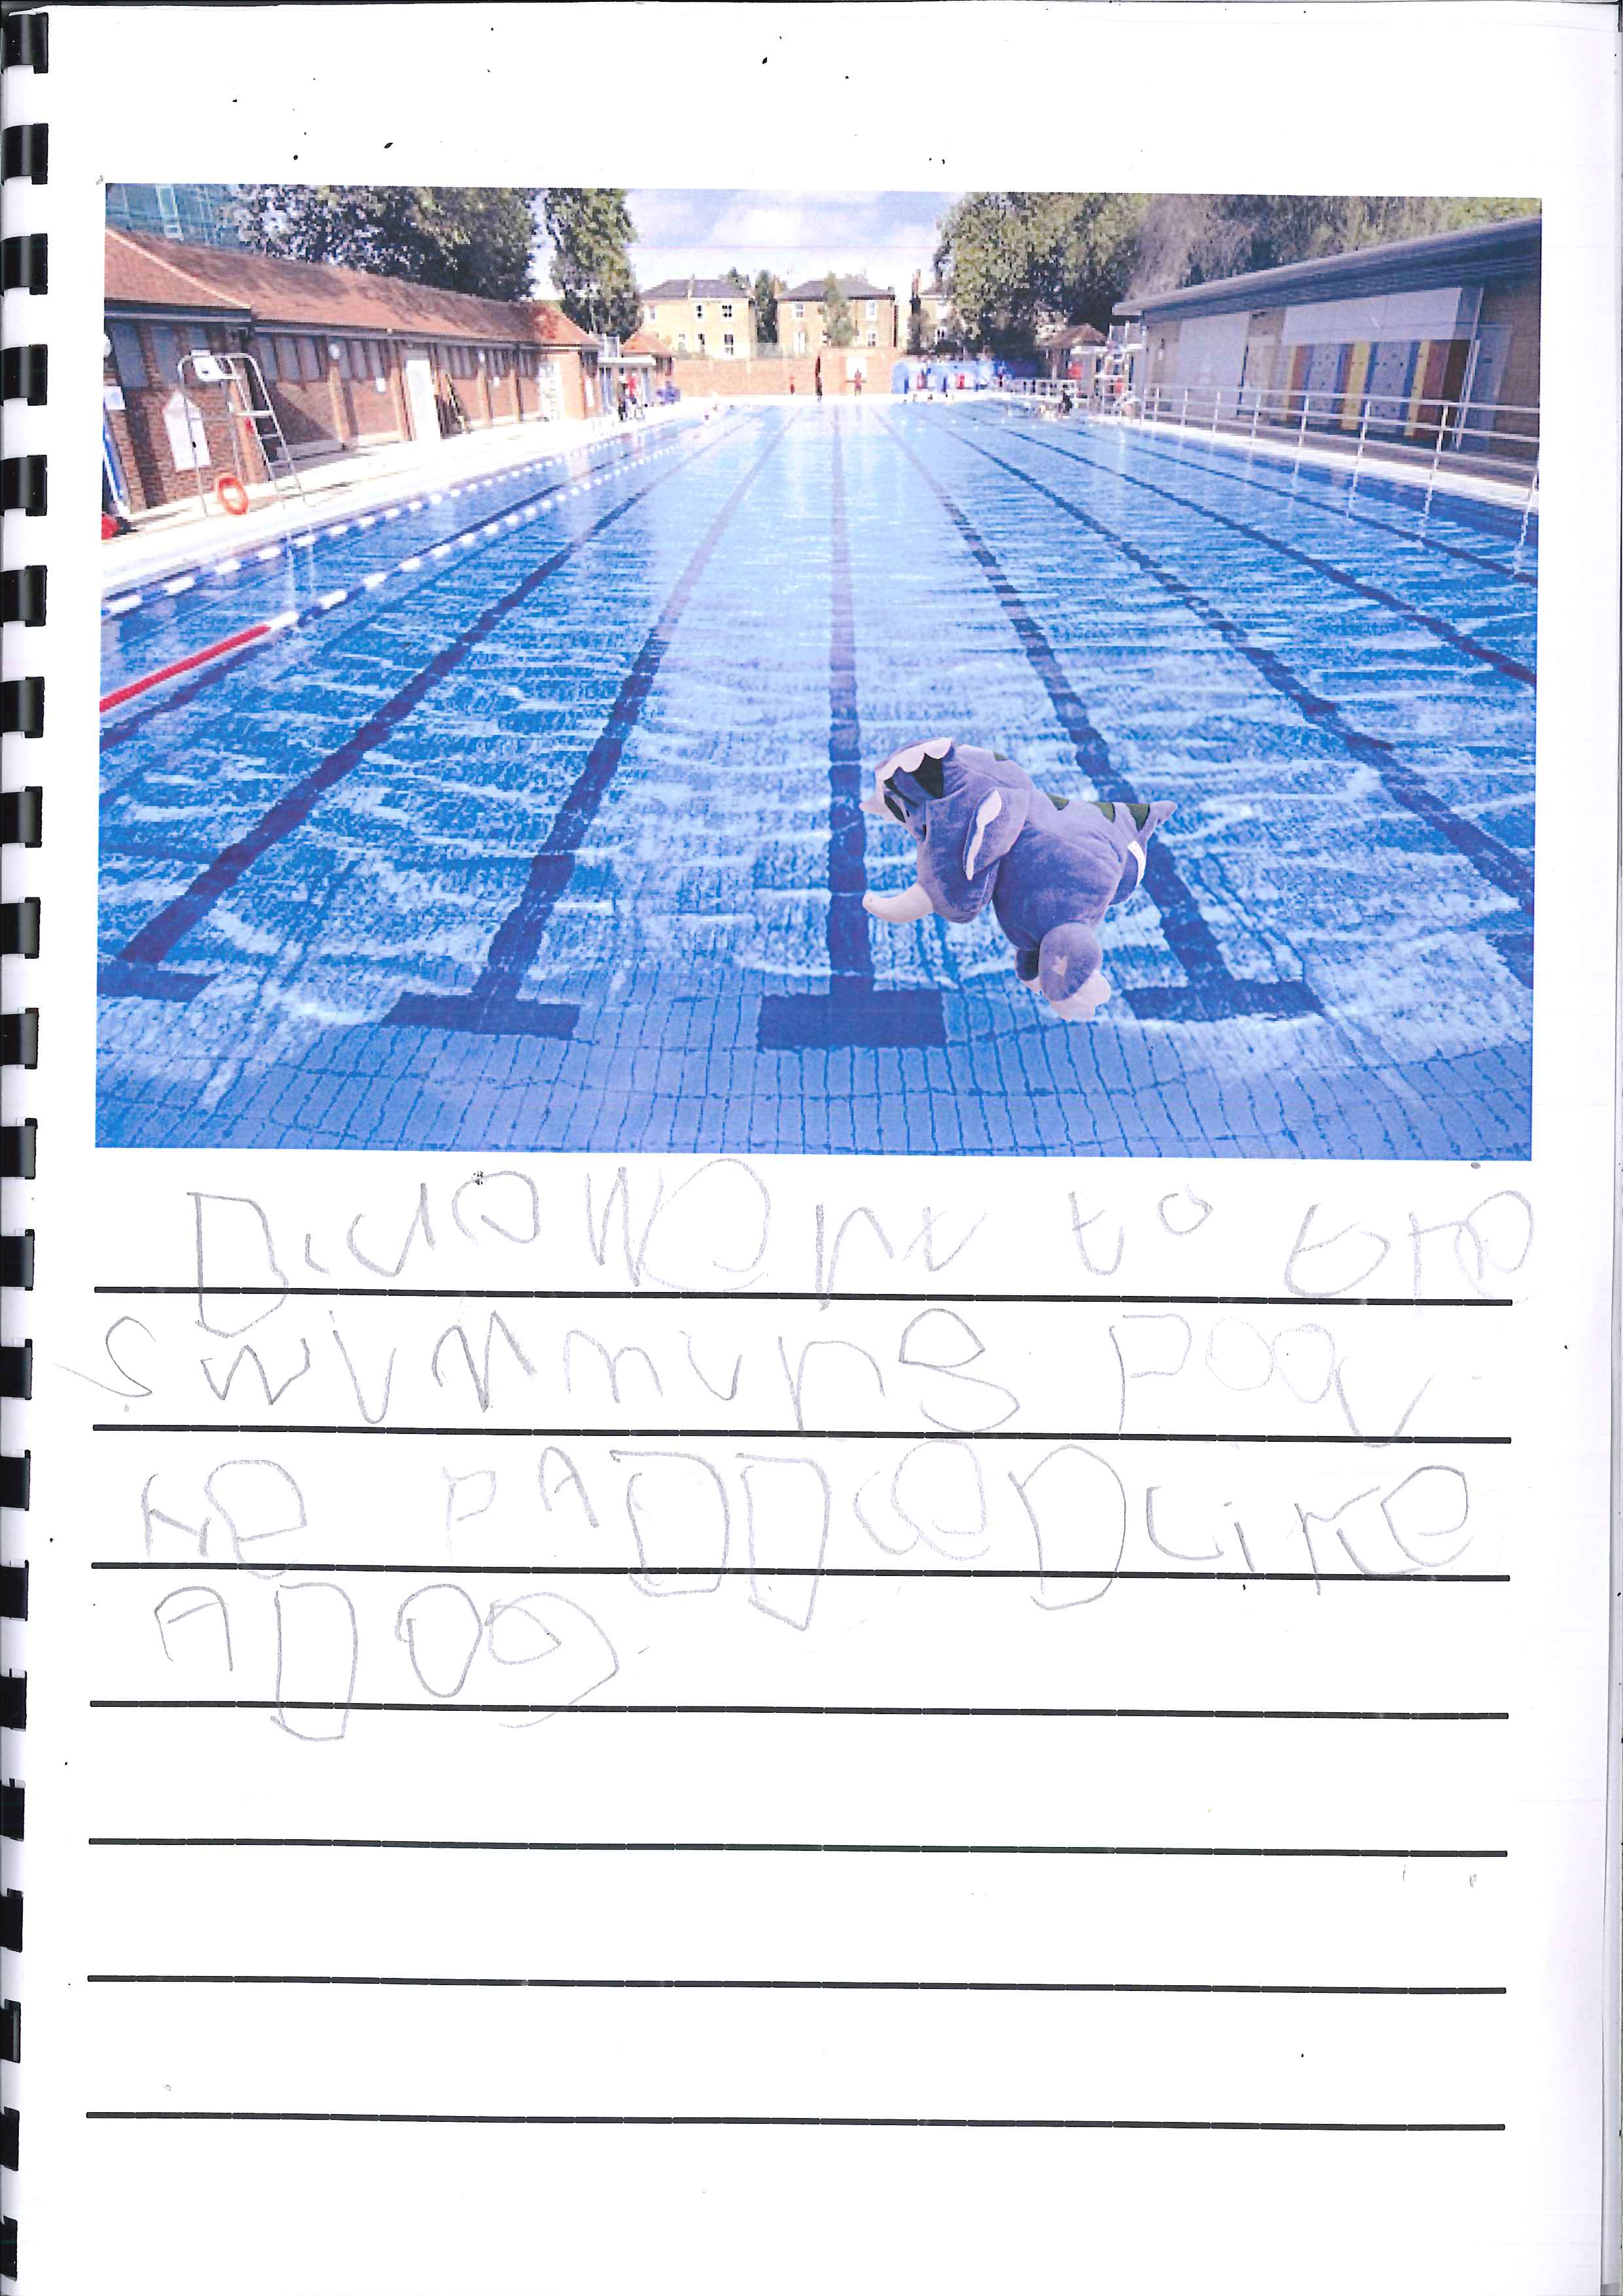 Dido WeNt to the
swimming Pool
he PADDleD like
A Dog